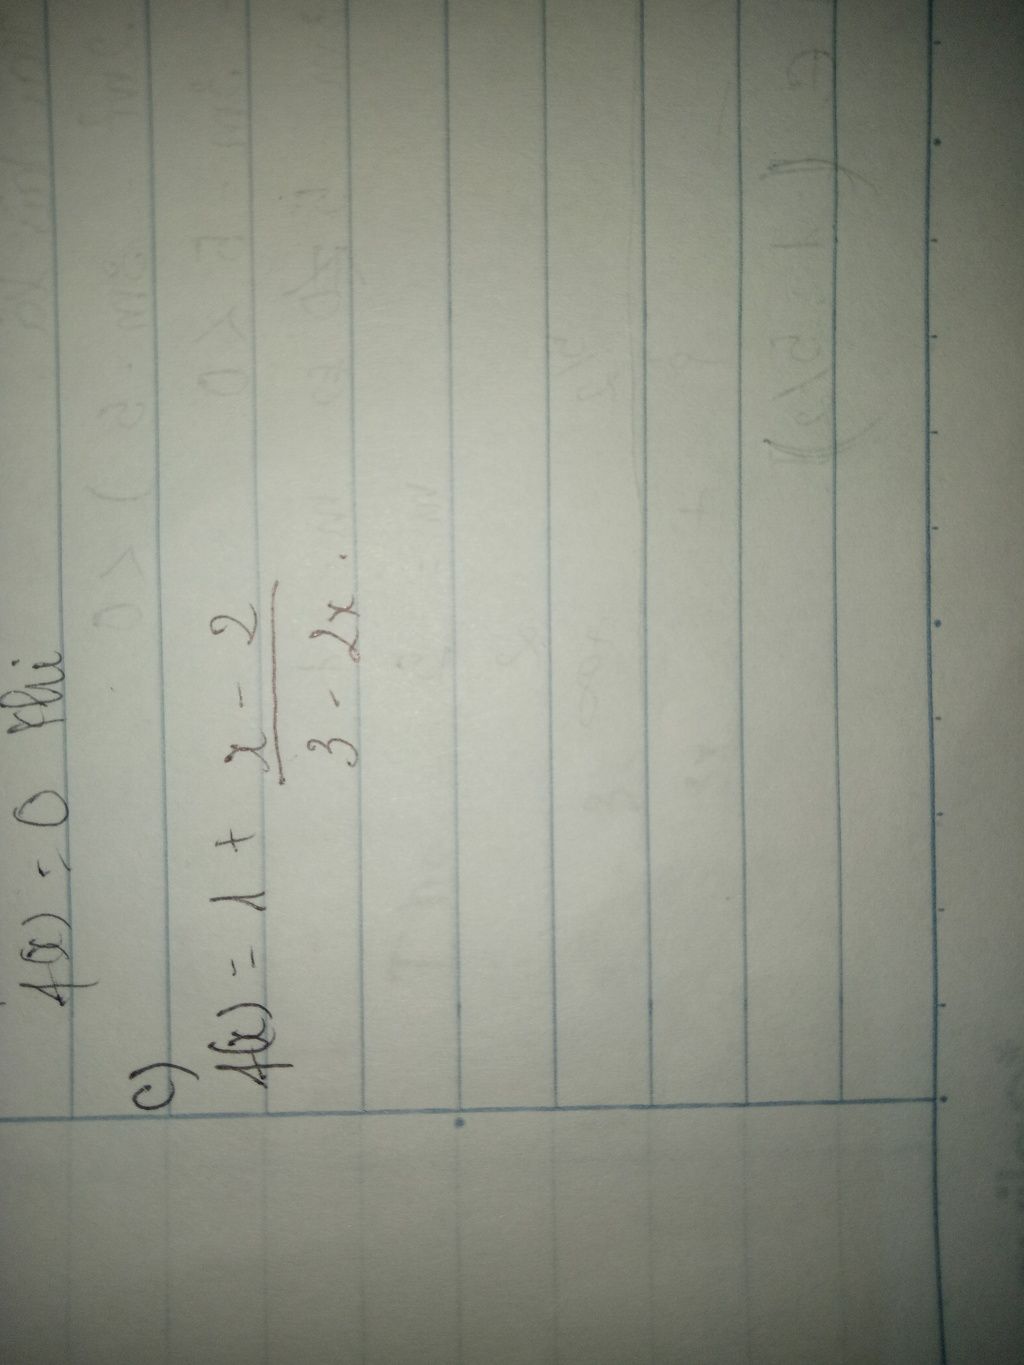 f(x) = 0 khi
c)
f(x) = 1 + x - 2
3 - 2x.